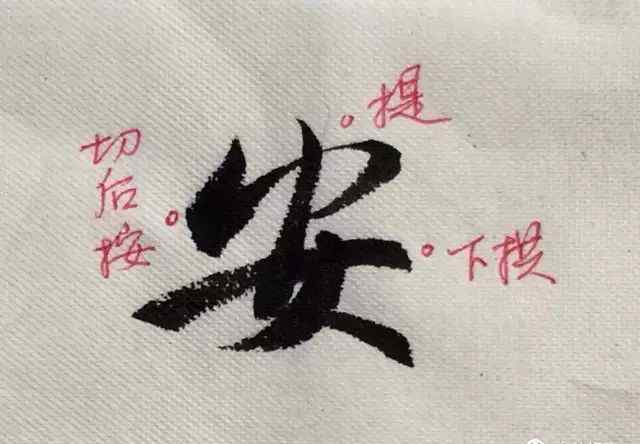 提
切后按
安
下拱